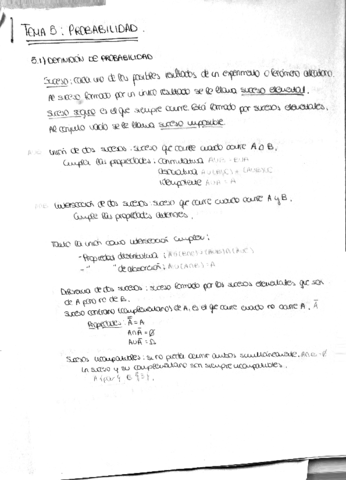 TEMA 5: PROBABILIDAD.
5.1) DEFINICIÓN DE PROBABILIDAD
Suceso: cada uno de los posibles resultados de un experimento o fenómeno aleatorio.
Al suceso formado por un único resultado se le llama suceso elemental.
Suceso seguro es el que siempre ocurre. Está formado por sucesos elementales.
Al conjunto vacío se le llama suceso imposible.
Unión de dos sucesos: suceso que ocurre cuando ocurre A o B.
Cumple las propiedades: conmutativa
asociativa
idempotente
Intersección de dos sucesos: suceso que ocurre cuando ocurre A y B.
Cumple las propiedades anteriores.
Tanto la unión como intersección cumplen:
- Propiedad distributiva
- " " de absorción:
Diferencia de dos sucesos: suceso formado por los sucesos elementales que son
de A pero no de B.
Suceso contrario (complementario) de A, es el que ocurre cuando no ocurre A. Ā
Propiedades: = A
A∩Ā = Ø
A∪Ā = Ω
Sucesos incompatibles: si no pueden ocurrir ambos simultáneamente.
Un suceso y su complementario son siempre incompatibles.